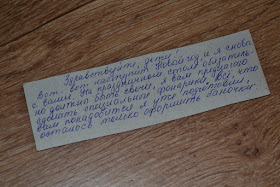 Здравствуйте, дети!
Вот - вот наступит Новый год и я снова
с вами. На праздничном столе обязательно
должны быть свечи, я вам предлагаю
сделать специальные фонарики. Всё, что
вам понадобится я уже подготовил,
осталось только оформить баночки.